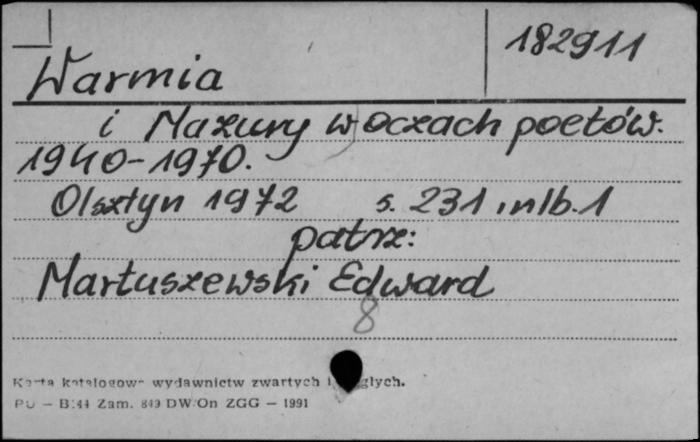 182911
Warmia
i Mazury w oczach poetów.
1940-1970.
Olsztyn 1972 s. 231, nlb. 1
patrz:
Martuszewski Edward
8
Karta katalogowa wydawnictw zwartych i ciągłych.
PU — B/44 Zam. 849 DW/On ZGG — 1991